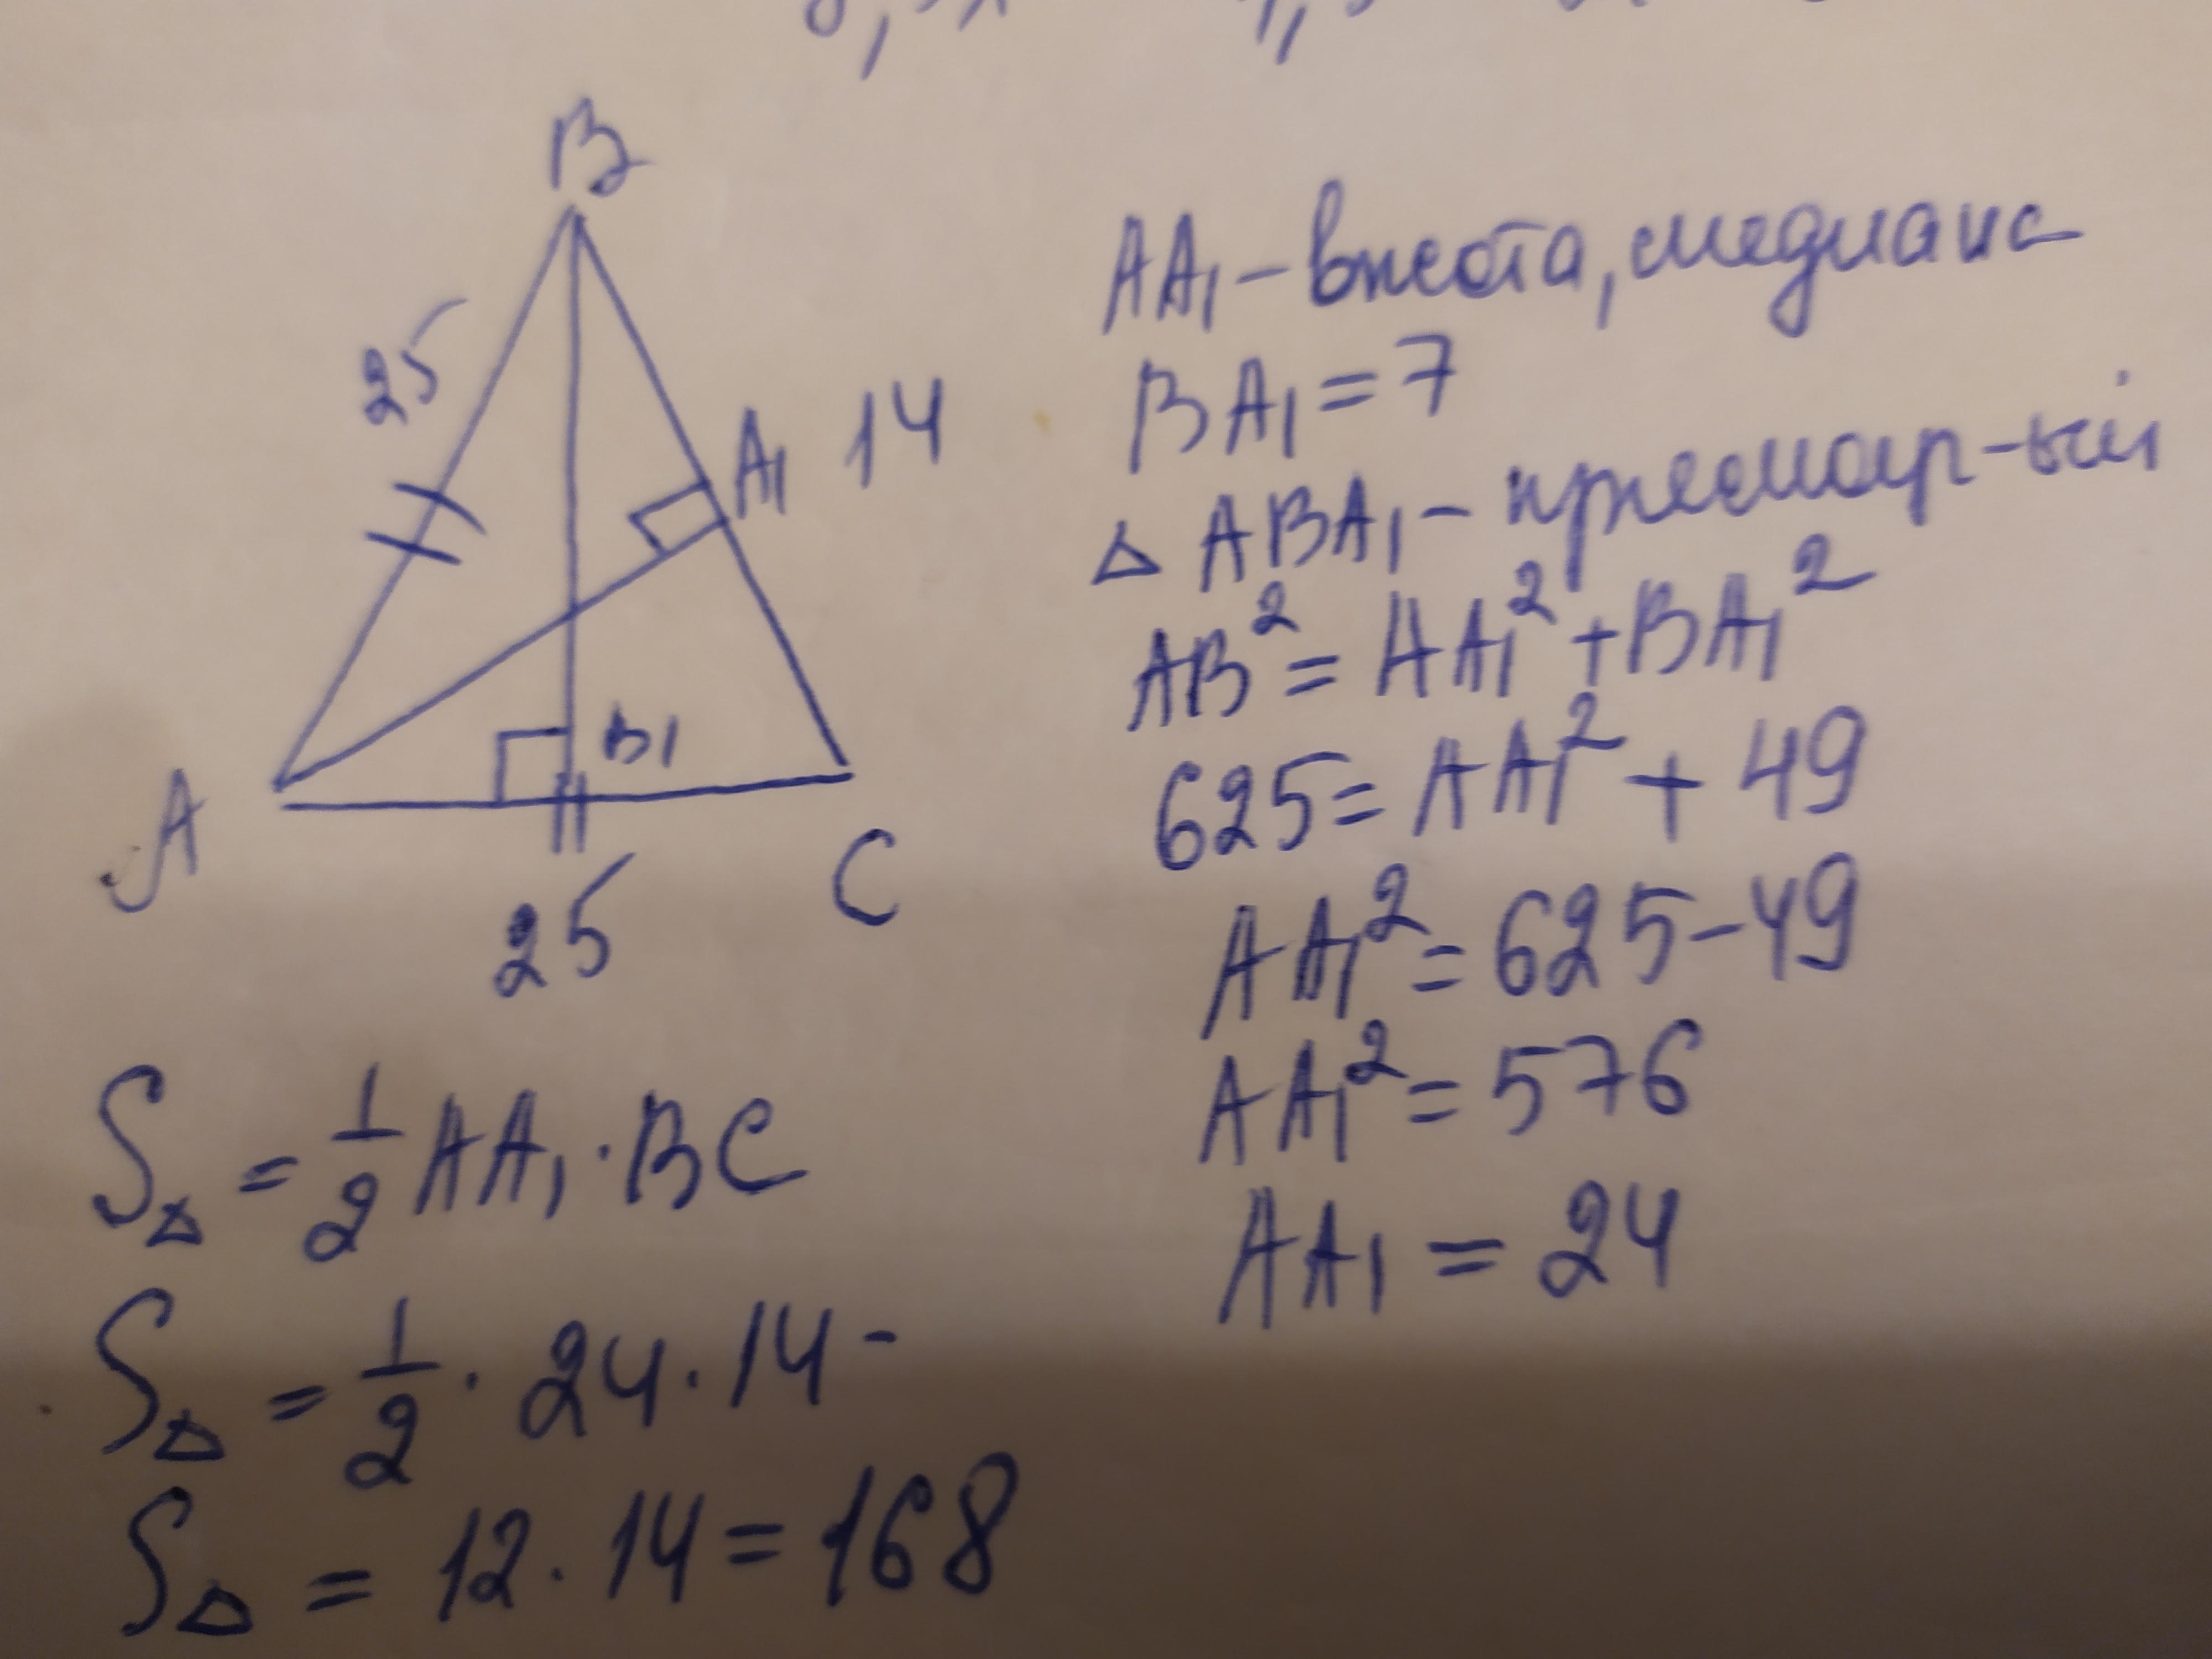 B
25
A1 14
B1
A
C
25
AA1 - высота, медиана
BA1 = 7
△ ABA1 - прямоуг-ый
AB² = AA1² + BA1²
625 = AA1² + 49
AA1² = 625 - 49
AA1² = 576
AA1 = 24
S△ = 1/2 AA1 · BC
S△ = 1/2 · 24 · 14 -
S△ = 12 · 14 = 168